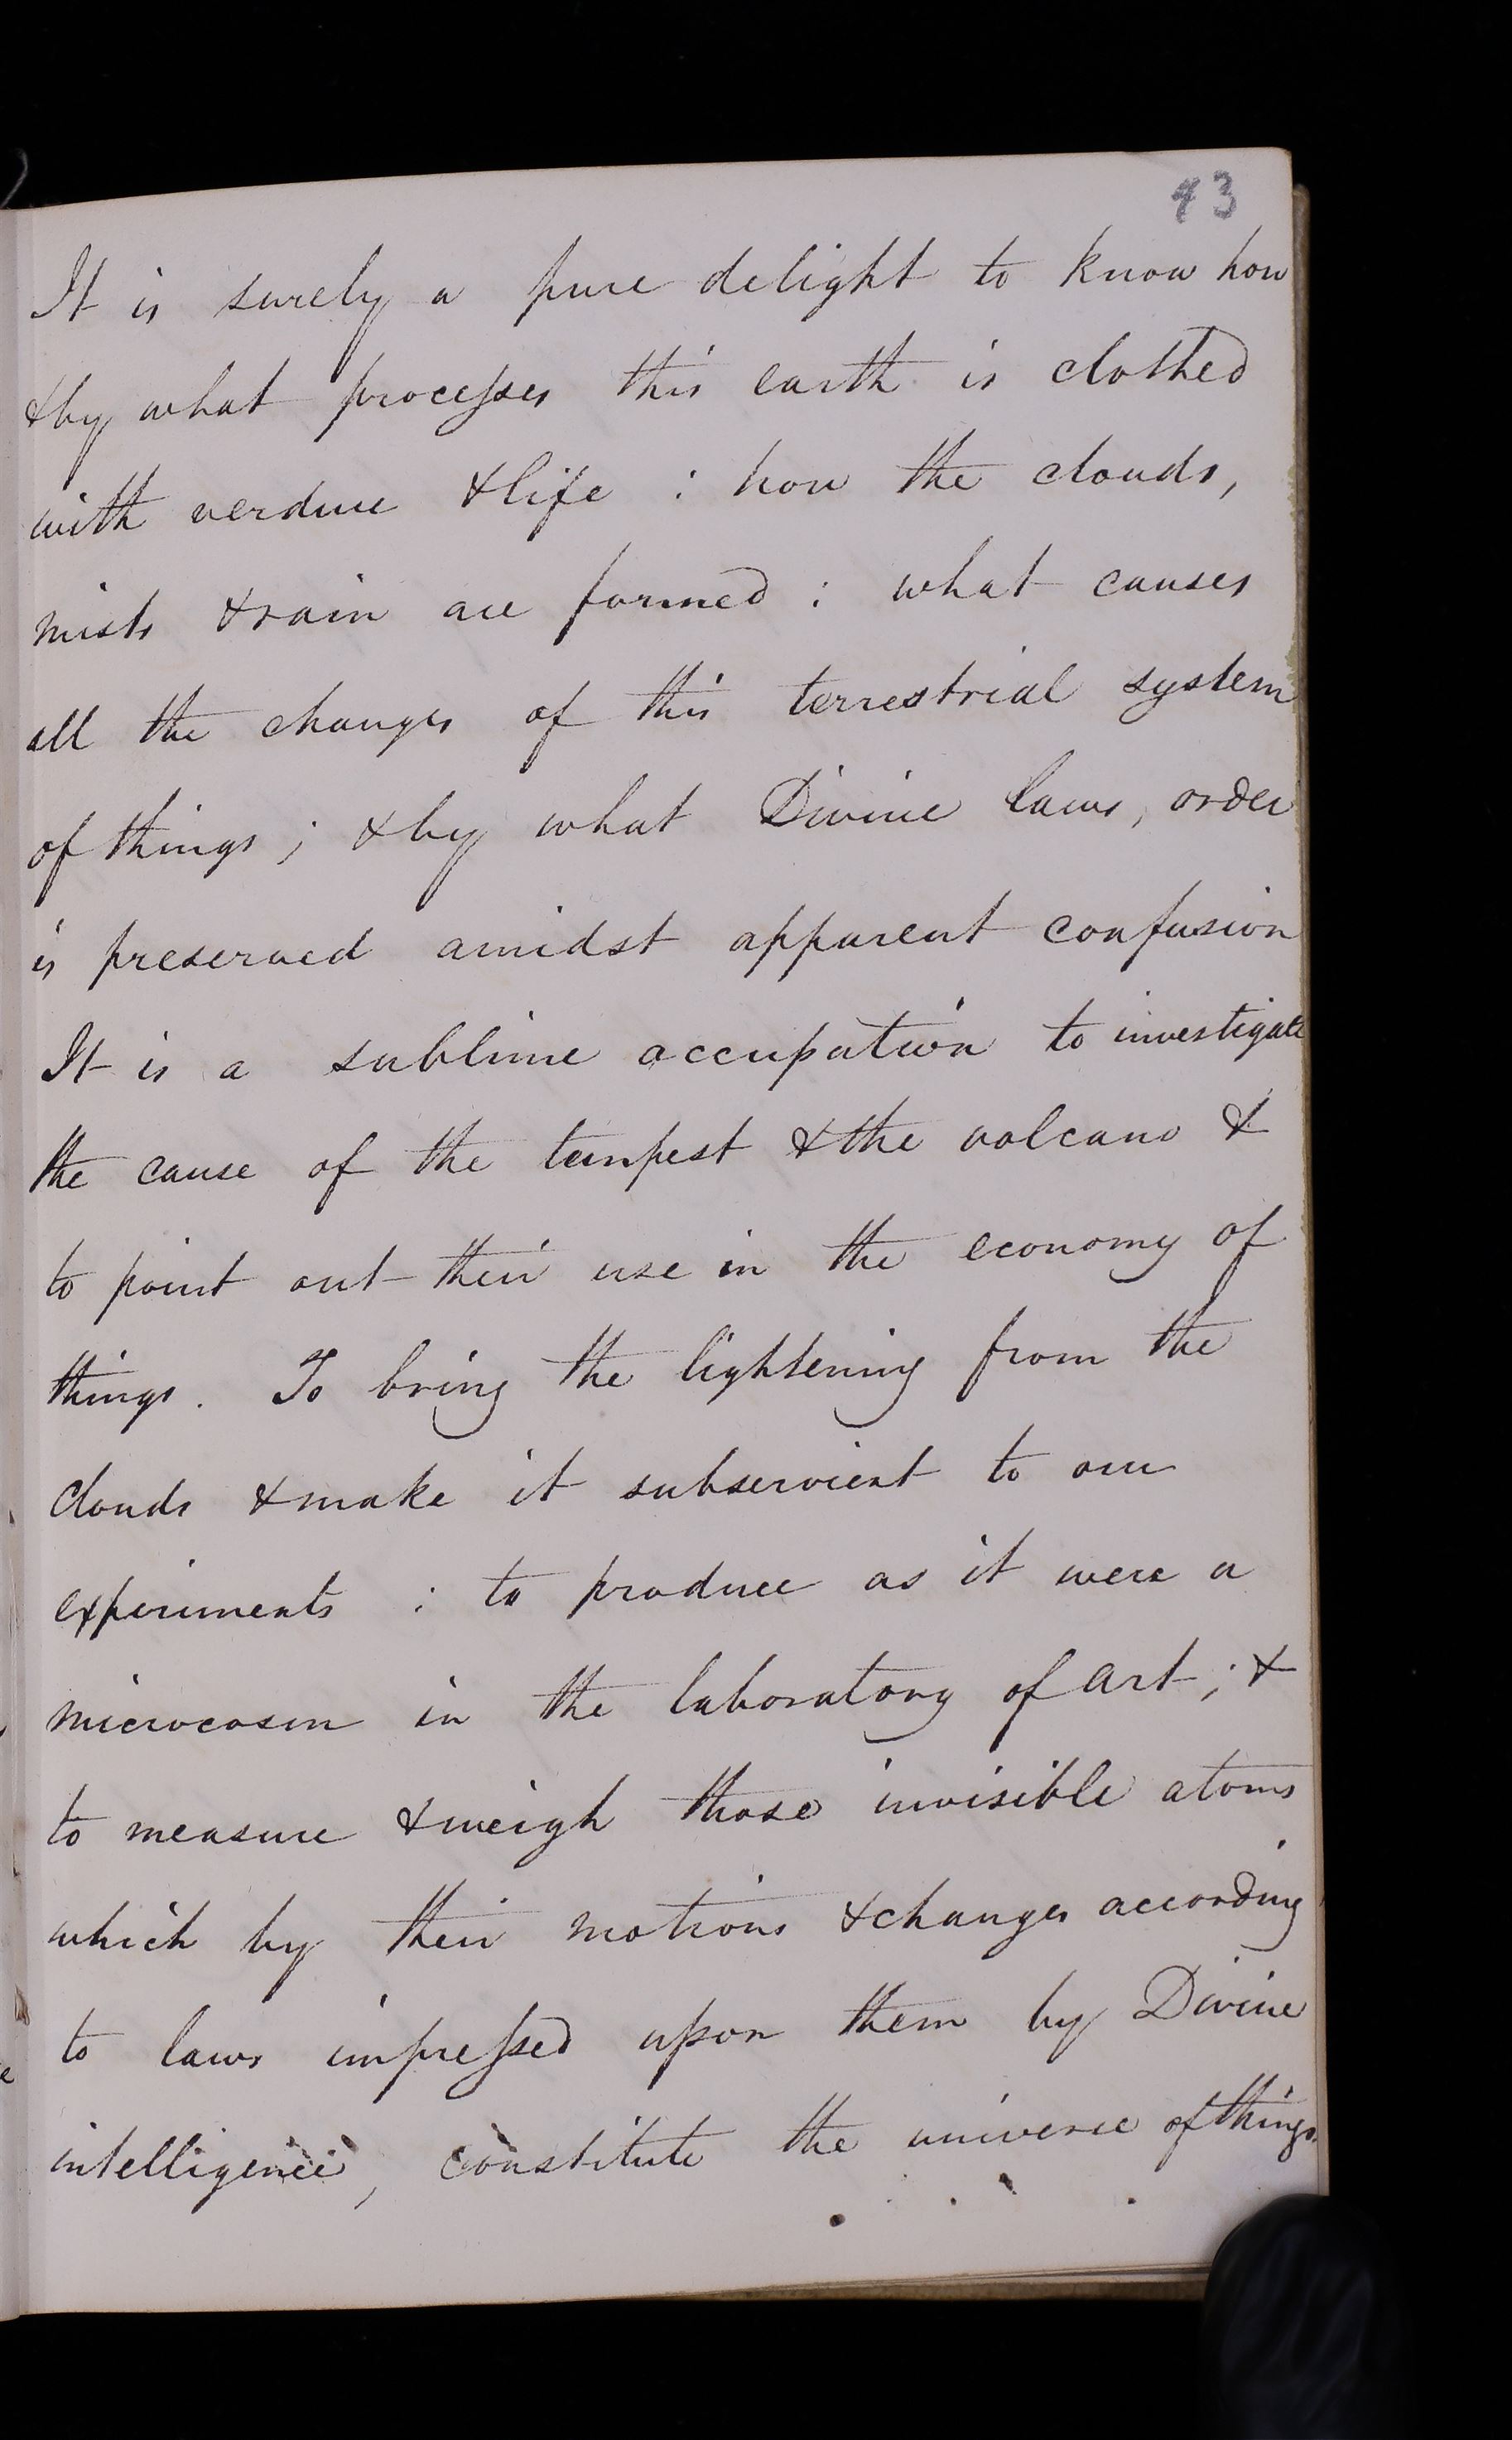 93
It is surely a pure delight to know how
& by what processes this earth is clothed
with verdure & life : how the clouds,
mists & rain are formed : what causes
all the changes of this terrestrial system
of things ; & by what Divine laws, order
is preserved amidst apparent confusion
It is a sublime occupation to investigate
the cause of the tempest & the volcano &
to point out their use in the economy of
things. To bring the lightening from the
clouds & make it subservient to our
experiments : to produce as it were a
microcosm in the laboratory of art ; &
to measure & weigh those invisible atoms
which by their motions & changes according
to laws impressed upon them by Divine
intelligence, constitute the universe of things.